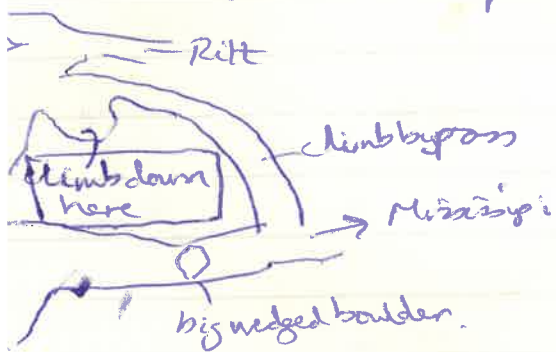 Rift
climb bypass
climb down
here
Mississipi
big wedged boulder.